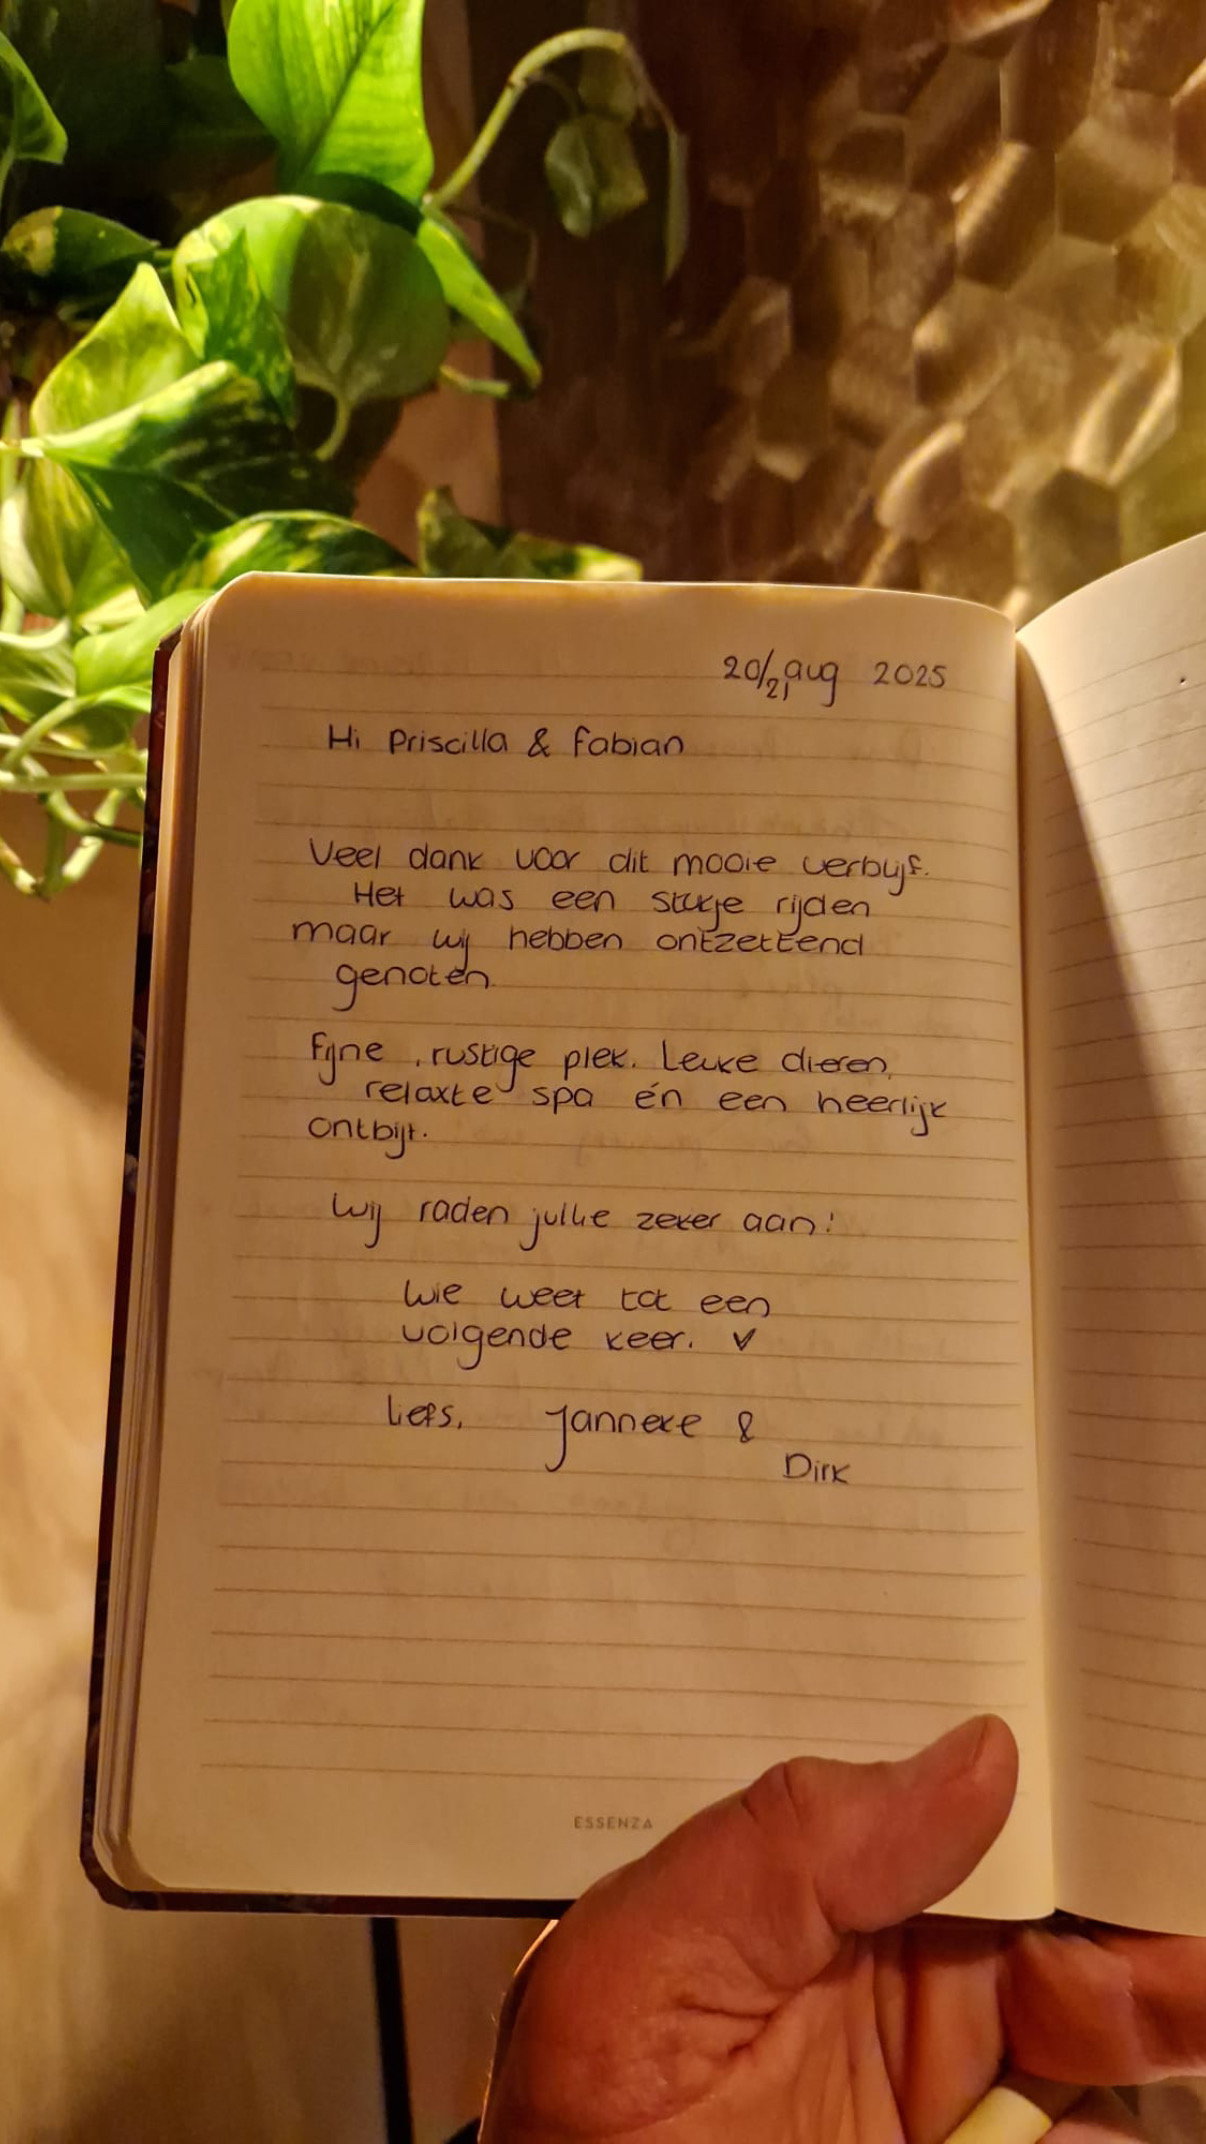 20/21 aug 2025
Hi Priscilla & Fabian
Veel dank voor dit mooie verblijf.
Het was een stukje rijden
maar wij hebben ontzettend
genoten.
Fijne, rustige plek. Leuke dieren,
relaxte spa én een heerlijk
ontbijt.
Wij raden jullie zeker aan!
Wie weet tot een
volgende keer. ♥
Liefs, Janneke &
Dirk
ESSENZA